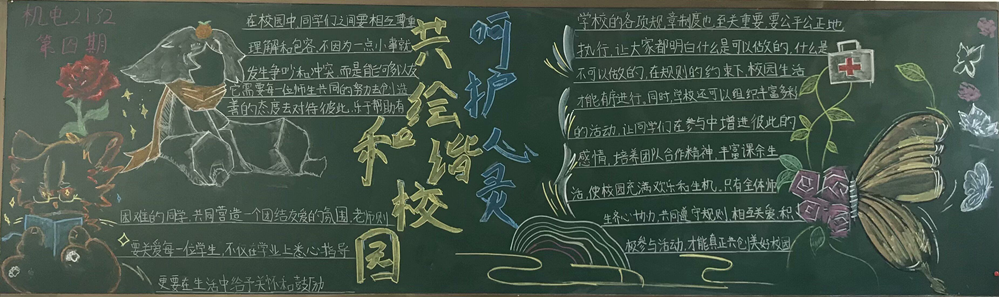 机电2132
第四期
在校园中,同学们之间要相互尊重
理解和包容,不因为一点小事就
发生争吵和冲突,而是能够以友
它需要每一位师生共同的努力去创造
善的态度去对待彼此,乐于帮助有
困难的同学,共同营造一个团结友爱的氛围,老师则
要关爱每一位学生,不仅在学业上悉心指导
更要在生活中给予关怀和鼓励
共绘谐校园
和
呵护人灵
学校的各项规章制度也至关重要,要公平公正地
执行,让大家都明白什么是可以做的,什么是
不可以做的,在规则的约束下,校园生活
才能有序进行,同时,学校还可以组织丰富多彩
的活动,让同学们在参与中增进彼此的
感情,培养团队合作精神,丰富课余生
活,使校园充满欢乐和生机,只有全体师
生齐心协力,共同遵守规则,相互关爱,积
极参与活动,才能真正共创美好校园